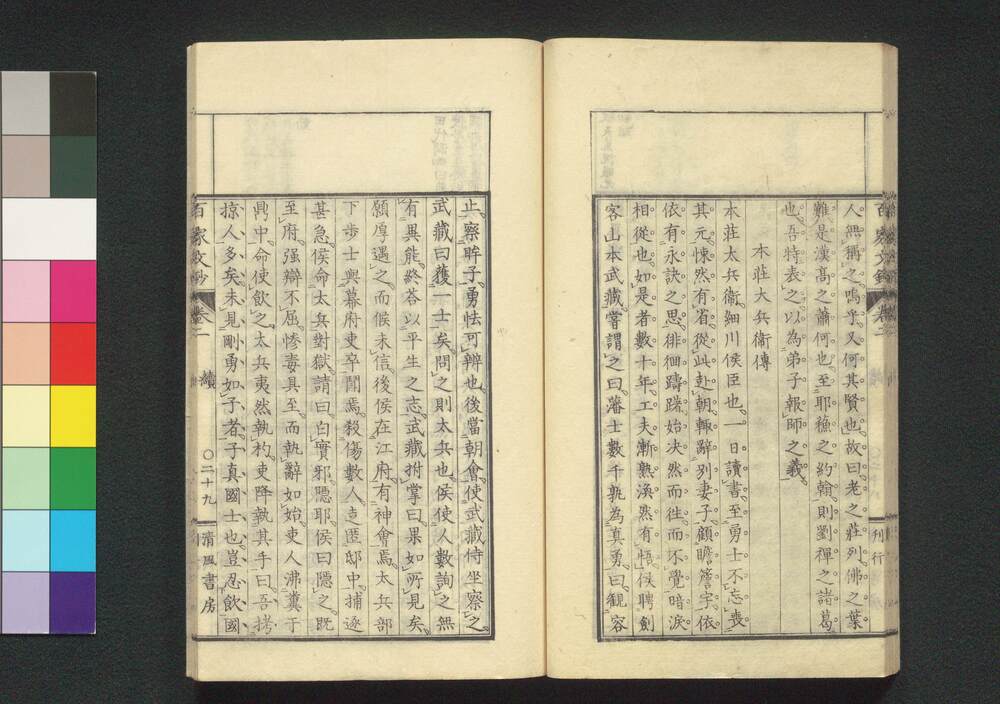 人無稱之嗚乎又何其賢也故曰老之莊列佛之葉
難是漢高之蕭何也至耶穌之約翰則劉禪之諸葛
也吾特表之以為弟子報師之義
木莊大兵衞傳
本莊太兵衞細川侯臣也一日讀書至勇士不忘喪
其元悚然有省從此赴朝輙辭別妻子顧瞻簷宇依
依有永訣之思徘徊躊躇始决然而徃而不覺暗淚
相從也如是者數十年工夫漸熟渙然有悟侯聘劍
客山本武藏嘗謂之曰藩士數千孰為真勇曰觀容
刊行
止察眸子勇怯可辨也後當朝會使武藏侍坐察之
武藏曰獲一士矣問之則太兵也侯使人數詢之無
有異能終荅以平生之志武藏拊掌曰果如所見矣
願厚遇之而候未信後侯在江府有神會焉太兵部
下步士與幕府吏卒鬪焉殺傷數人走匿邸中捕逐
甚急侯命太兵對獄請曰白實邪隱耶侯曰隱之既
至府强辯不屈慘毒具至而執辭如始吏人沸糞于
鼎中命使飲之太兵夷然執杓吏降執其手曰吾拷
掠人多矣未見剛勇如子者子真國士也豈忍飲國
百家文鈔
卷二
續
〇二十九
清風書房